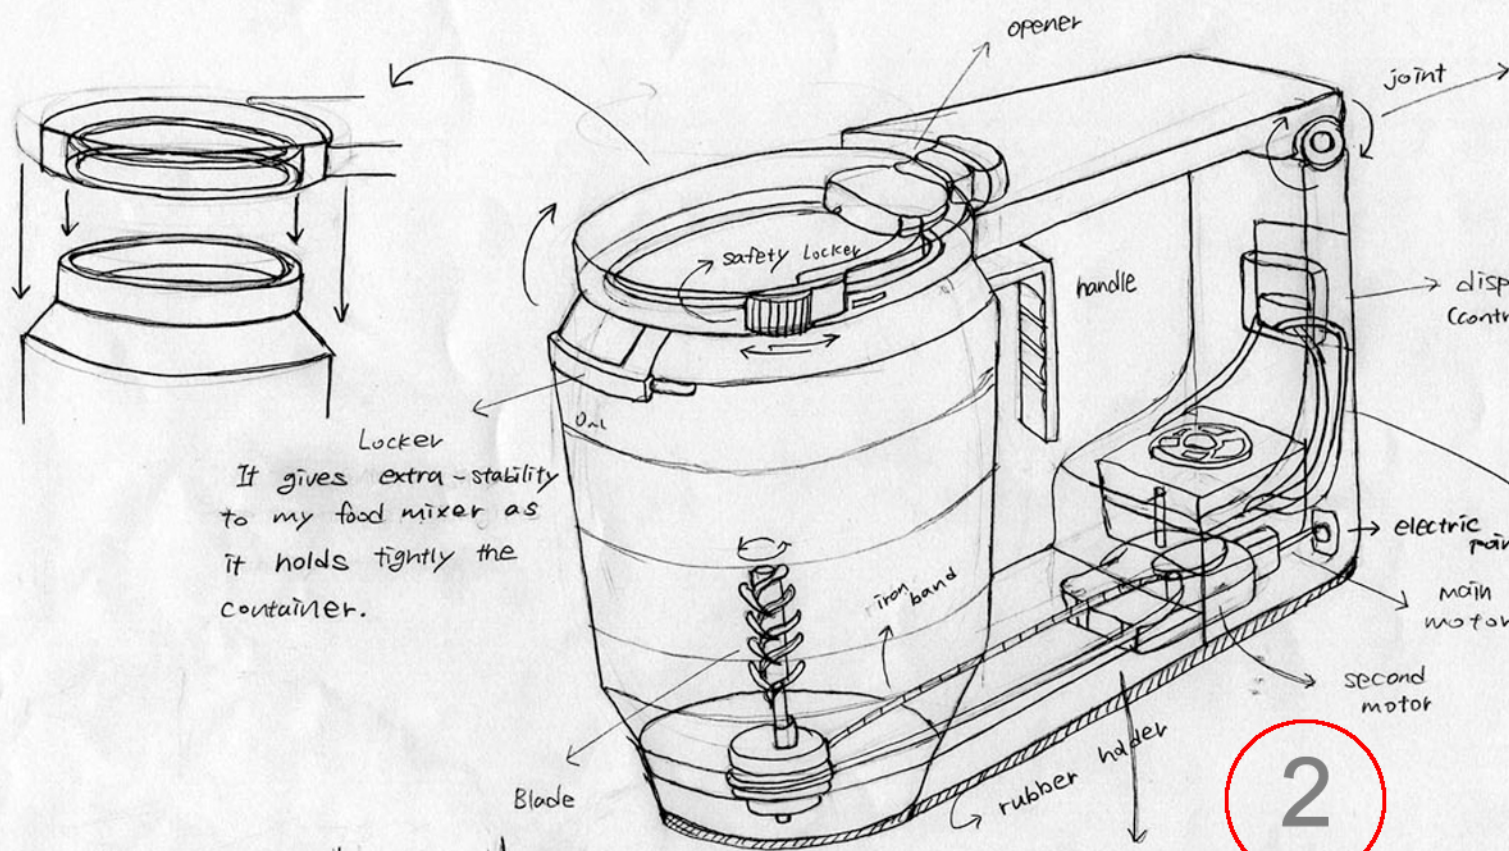 opener
joint
safety Locker
handle
disp
(contr
Locker
It gives extra-stability
to my food mixer as
it holds tightly the
container.
iron
band
electric
main
motor
second
motor
rubber holder
Blade
2